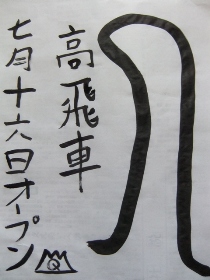 高飛車
七月十六日オープン